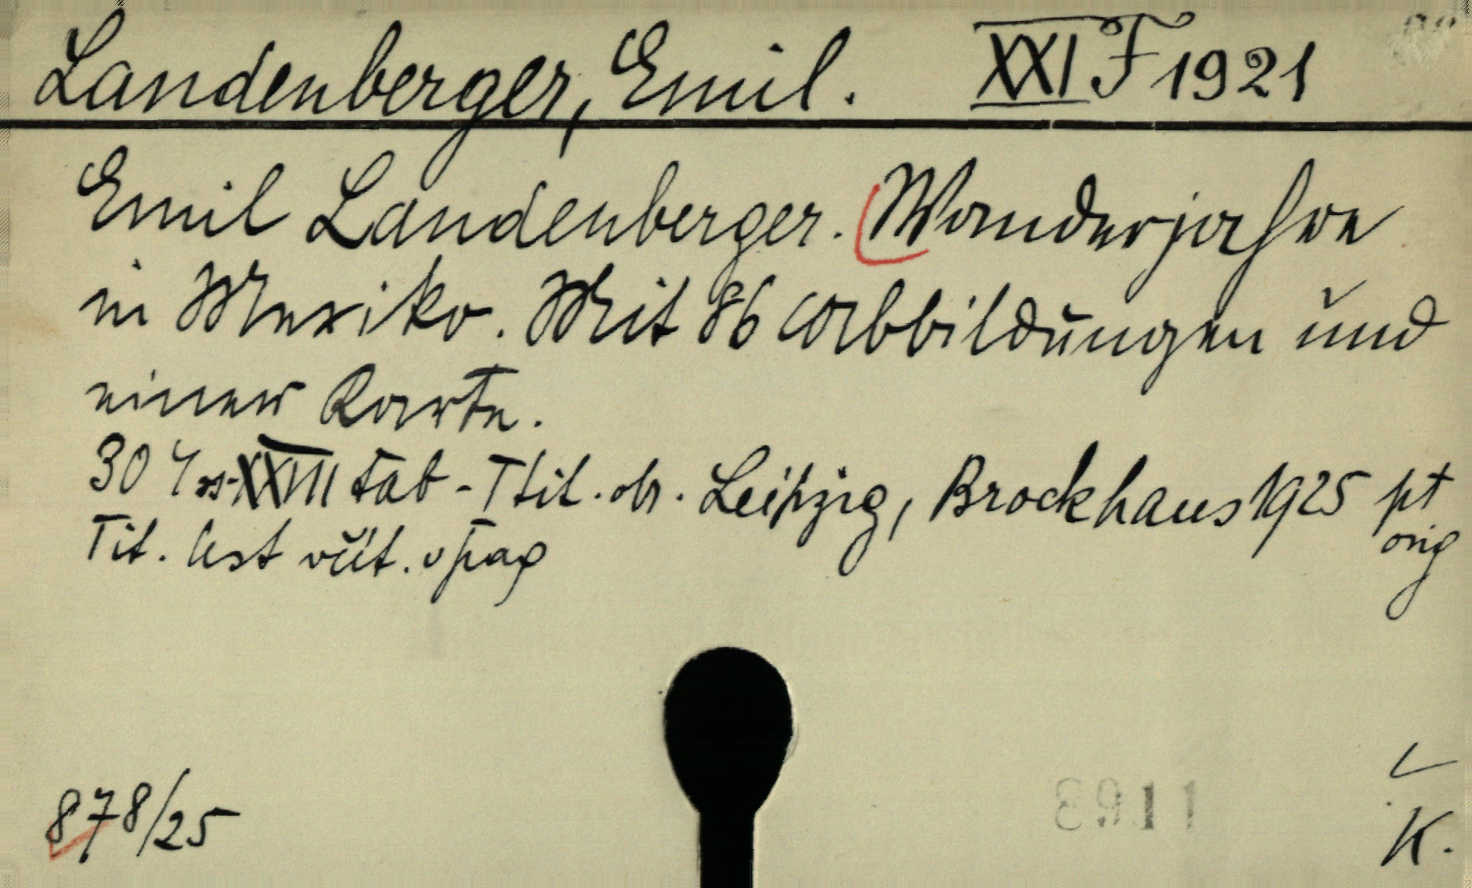 Landenberger, Emil. XXI F 1921
Emil Landenberger. Wanderjahre
in Mexiko. Mit 86 Abbildungen und
einer Karte.
30 XXIII tab - Ttit. ob. Leipzig, Brockhaus 1925 pt
Tit. list včít. v pag orig
878/25
3911
K.